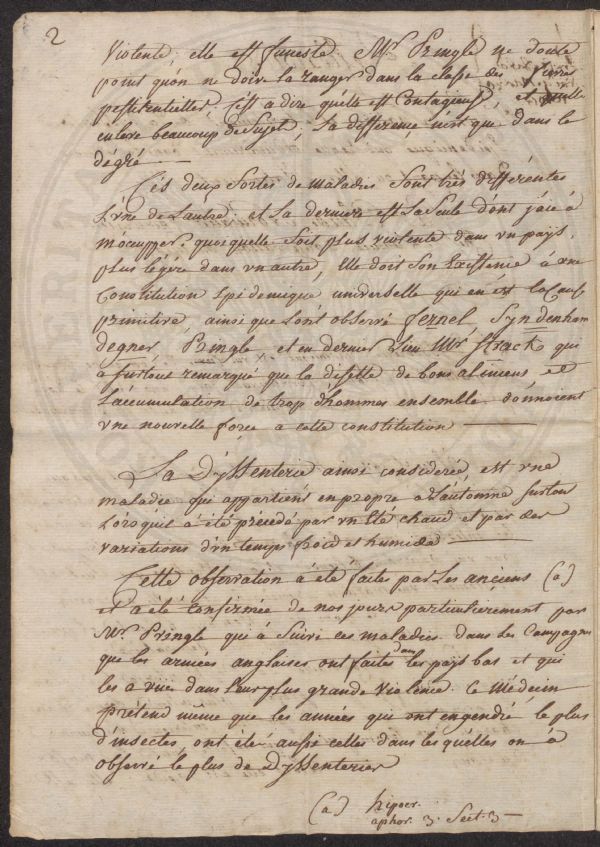 2
Violente, elle est funeste. Mr. Pringle ne doute
point qu'on ne doive la ranger dans la classe des fievres
pestilentielles, C'est a dire qu'elle est Contagieuse, et qu'elle
enleve beaucoup de Sujet, La difference n'est que dans le
dégré —
Cés deux Sortes de maladies Sont très différentes
L'une de L'autre. et La derniere est La Seule dont j'aie à
m'occupper. quoiquelle Soit plus violente dans un pays,
plus légére dans un autre, Elle doit Son Existence à une
Constitution Epidemique universelle qui en est la Cause
primitive, ainsi que L'ont observé fernel, Syndenham
degner, Pringle et en dernier Lieu Mr. Strack, qui
à Surtout remarqué que la disette de bons alimens et
L'accumulation de trop d'hommes ensemble donnoient
une nouvelle force a cette constitution —
La Dyssenterie ainsi considerée, est une
maladie qui appartient en propre a L'automne surtou
Lorsquil à été précedé par un Eté chaud et par des
variations d'un temps froid et humide —
Cette observation à été faite par Les anciens (a)
et a été Confirmée de nos jours particulierement par
Mr. Pringle qui à Suivi ces maladies dans Les Campagnes
que les armées anglaises ont faites dans les pays bas et qui
les a vues dans leur plus grande violence. Ce Médecin
prétend même que les années qui ont engendré le plus
d'insectes, ont été aussi celles dans les quélles on à
observé le plus de Dyssenteries
(a) hipocr.
aphor. 3. Sect. 3 —